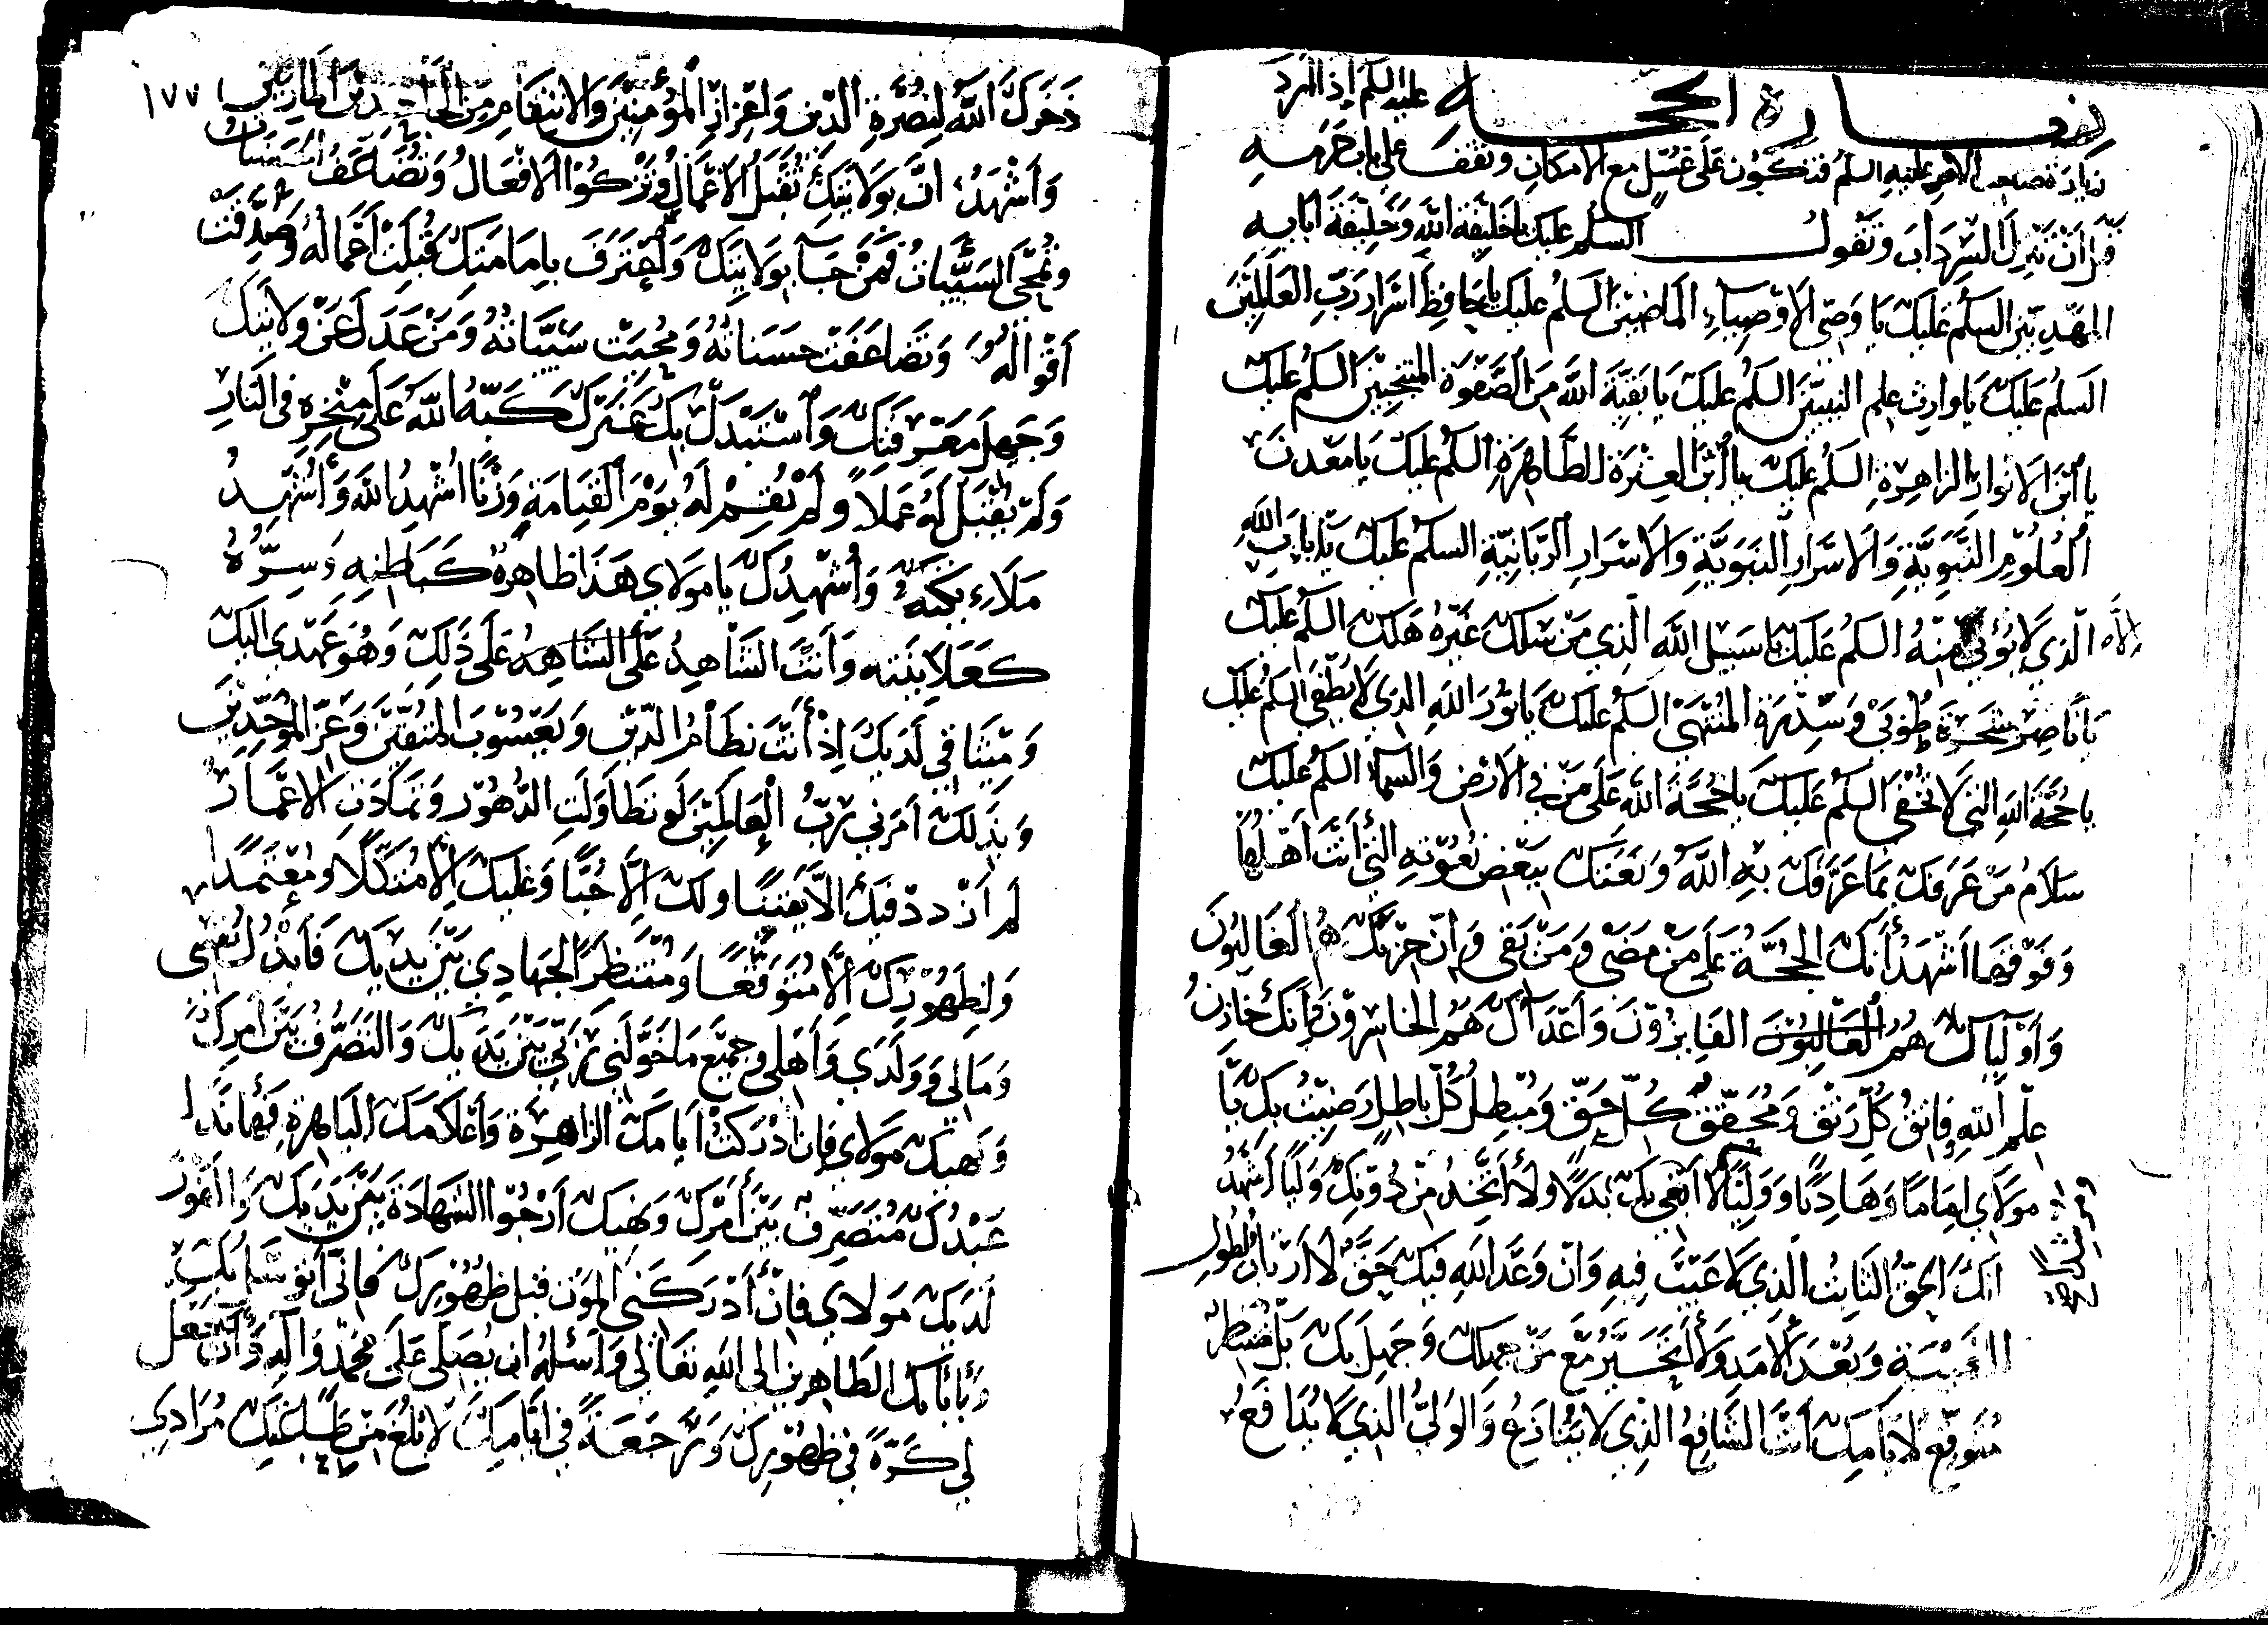 زيارة الحجة عليه السلم اذا اردت
زيارة صاحب الامر عليه السلم فتكون على غسل مع الامكان وتقف على باب حرمه
قبل ان تنزل السرداب وتقول السلم عليك يا خليفة الله وخليفة آبايه
المهديين السلم عليك يا وصى الاوصياء الماضين السلم عليك يا حافظ اسرار رب العالمين
السلم عليك يا وارث علم النبيين السلم عليك يا بقية الله من الصفوة المنتجبين السلم عليك
يا ابن الانوار الزاهرة السلم عليك يا ابن العترة الطاهرة السلم عليك يا معدن
العلوم النبوية والاسرار النبوية والاسرار الربانية السلم عليك يا باب الله
الذي لا يؤتى الا منه السلم عليك يا سبيل الله الذي من سلك غيره هلك السلم عليك
يا ناصر شجرة طوبى وسدرة المنتهى السلم عليك يا نور الله الذي لا يطفى السلم عليك
يا حجة الله التي لا تخفى السلم عليك يا حجة الله على من في الارض والسماء السلم عليك
سلام من عرفك بما عرفك به الله ونعتك ببعض نعوته التي انت اهلها
وفوقها اشهد انك الحجة على من مضى ومن بقى وان حزبك هم الغالبون
واوليائك هم الغالبون الفايزون واعدائك هم الخاسرون وانك خازن
علم الله وفاتق كل رتق ومحقق كل حق ومبطل كل باطل رضيت بك يا
مولاي اماما وهاديا ووليا لا ابتغي بك بدلا ولا اتخذ من دونك وليا اشهد
انك الحق الثابت الذي لا عيب فيه وان وعد الله فيك حق لا ارتاب لطول
الغيبة وبعد الامد ولا اتحير مع من جهلك وجهل بك بل منتظر
متوقع لايامك انت الشافع الذي لا يتنازع والولي الذي لا يدافع
١٧٧
ذخرك الله لنصرة الدين واعزاز المؤمنين والانتقام من الجاحدين المارقين
واشهد ان بولايتك تقبل الاعمال وتزكوا الافعال وتضاعف الحسنات
وتمحى السيئات فمن جآء بولايتك واعترف بامامتك قبلت اعماله وصدقت
اقواله وتضاعفت حسناته ومحيت سيئاته ومن عدل عن ولايتك
وجهل معرفتك واستبدل بك غيرك كبه الله على منخره في النار
ولم يقبل له عملا ولم يقم له يوم القيامة وزنا اشهد الله واشهد
ملائكته واشهدك يا مولاي هذا ظاهره كباطنه وسره
كعلانيته وانت الشاهد على الشاهد على ذلك وهو عهدي اليك
وميثاقي لديك اذ انت نظام الدين ويعسوب المتقين وعز الموحدين
وبذلك امرني رب العالمين لو تطاولت الدهور وتمادت الاعمار
لم ازدد فيك الا يقينا ولك الا حبا وعليك الا متكلا ومعتمدا
ولظهورك الا متوقعا ومنتظرا لجهادي بين يديك فابذل نفسى
ومالى وولدي واهلى وجميع ما خولني ربي بين يديك والتصرف بين امرك
ونهيك مولاي فان ادركت ايامك الزاهرة واعلامك الباهرة فها انا ذا
عبدك متصرف بين امرك ونهيك ارجوا الشهادة بين يديك والفوز
لديك مولاي فان ادركني الموت قبل ظهورك فاني اتوسل بك
وبآبائك الطاهرين الى الله تعالى واسئله ان يصلى على محمد واله وان يجعل
لي كرة في ظهورك ورجعة في ايامك لابلغ من طاعتك مرادي